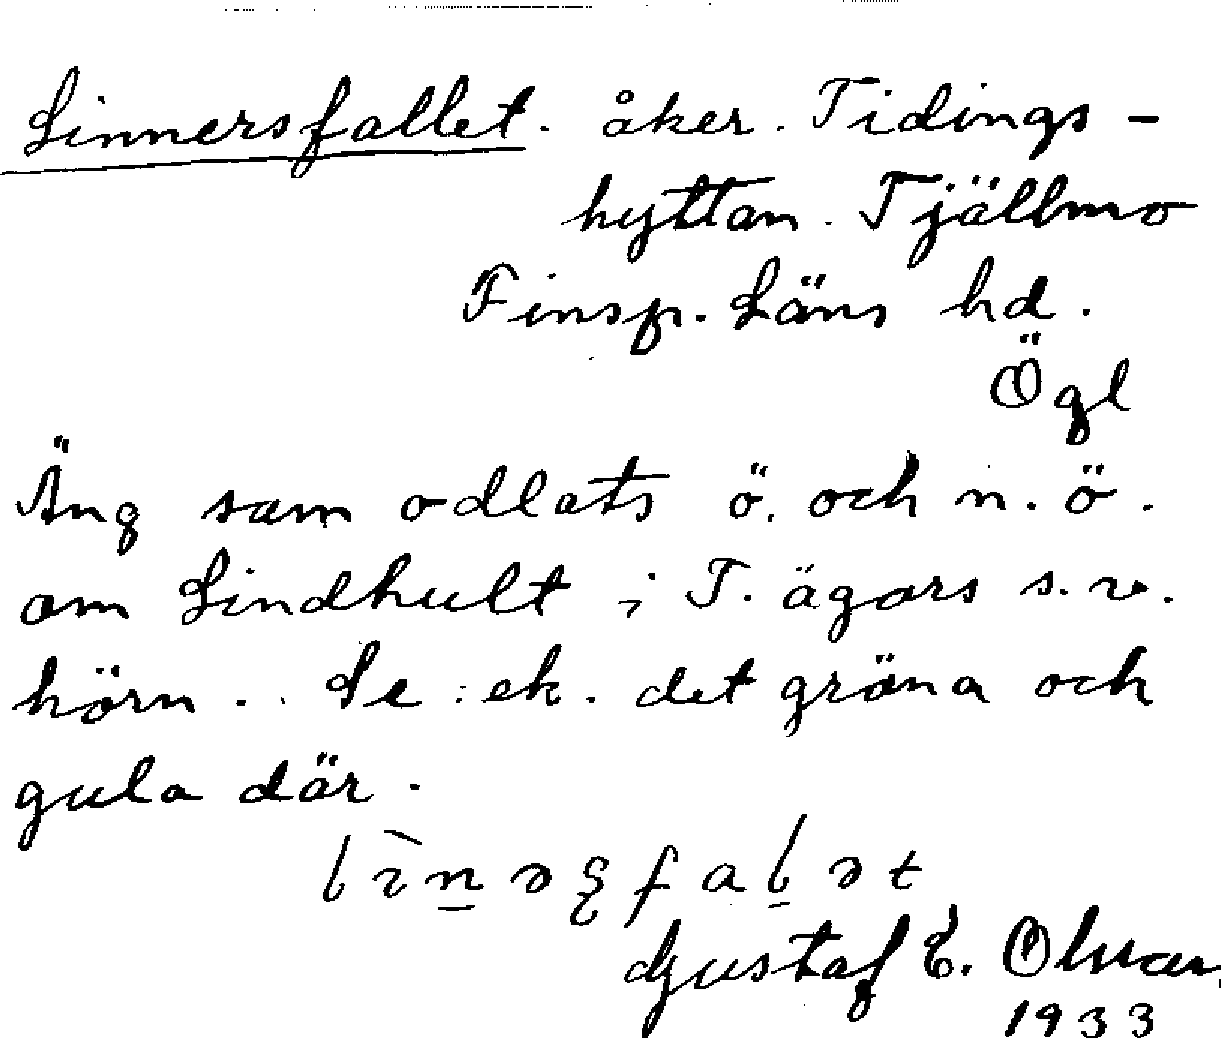 Linnersfallet. åker. Tidings-
hyttan. Tjällmo
Finsp. Läns hd.
Ögl
Äng som odlats ö. och n. ö.
om Lindhult i T. ägors s.v.
hörn. Se ek. det gröna och
gula där.
Gustaf E.
1933